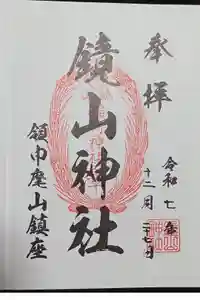 奉拝
令和七年
十二月二十七日
鏡山神社
領巾麾山鎮座